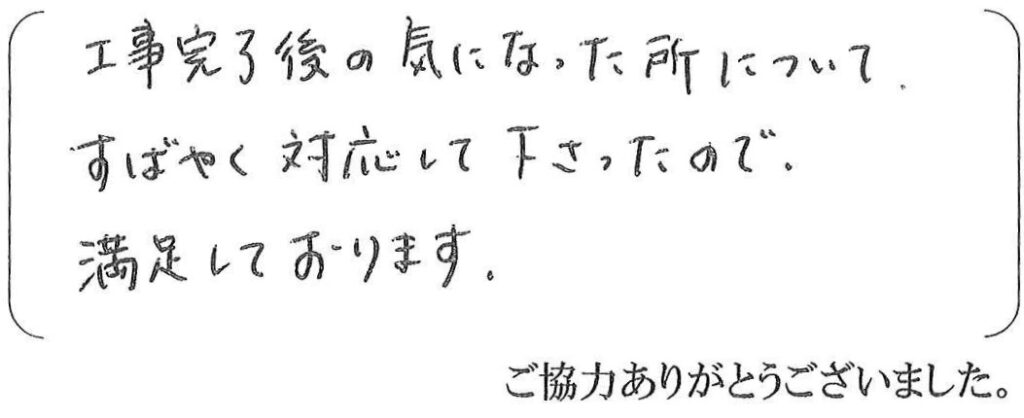 工事完了後の気になった所について、
すばやく対応して下さったので、
満足しております。
ご協力ありがとうございました。